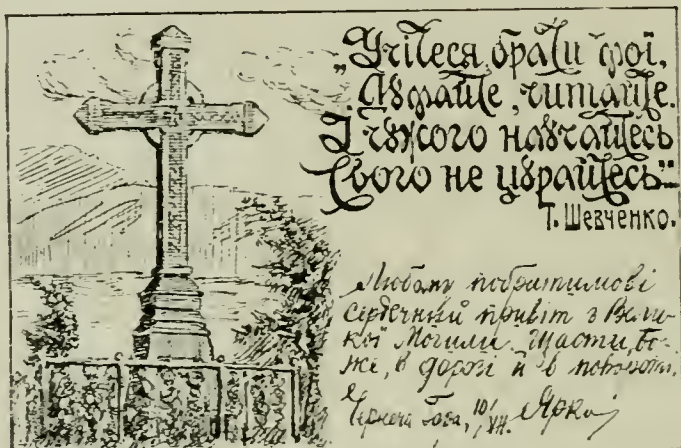 „Учітеся, брати мої,
Думайте, читайте.
І чужого научайтесь
Свого не цурайтесь“...
Т. Шевченко.
Любому побратимові
сердечний привіт з Вели-
кої Могили. Щасти, бо-
же, в дорозі й в
Чернеча гора, 10/VII. Ярко